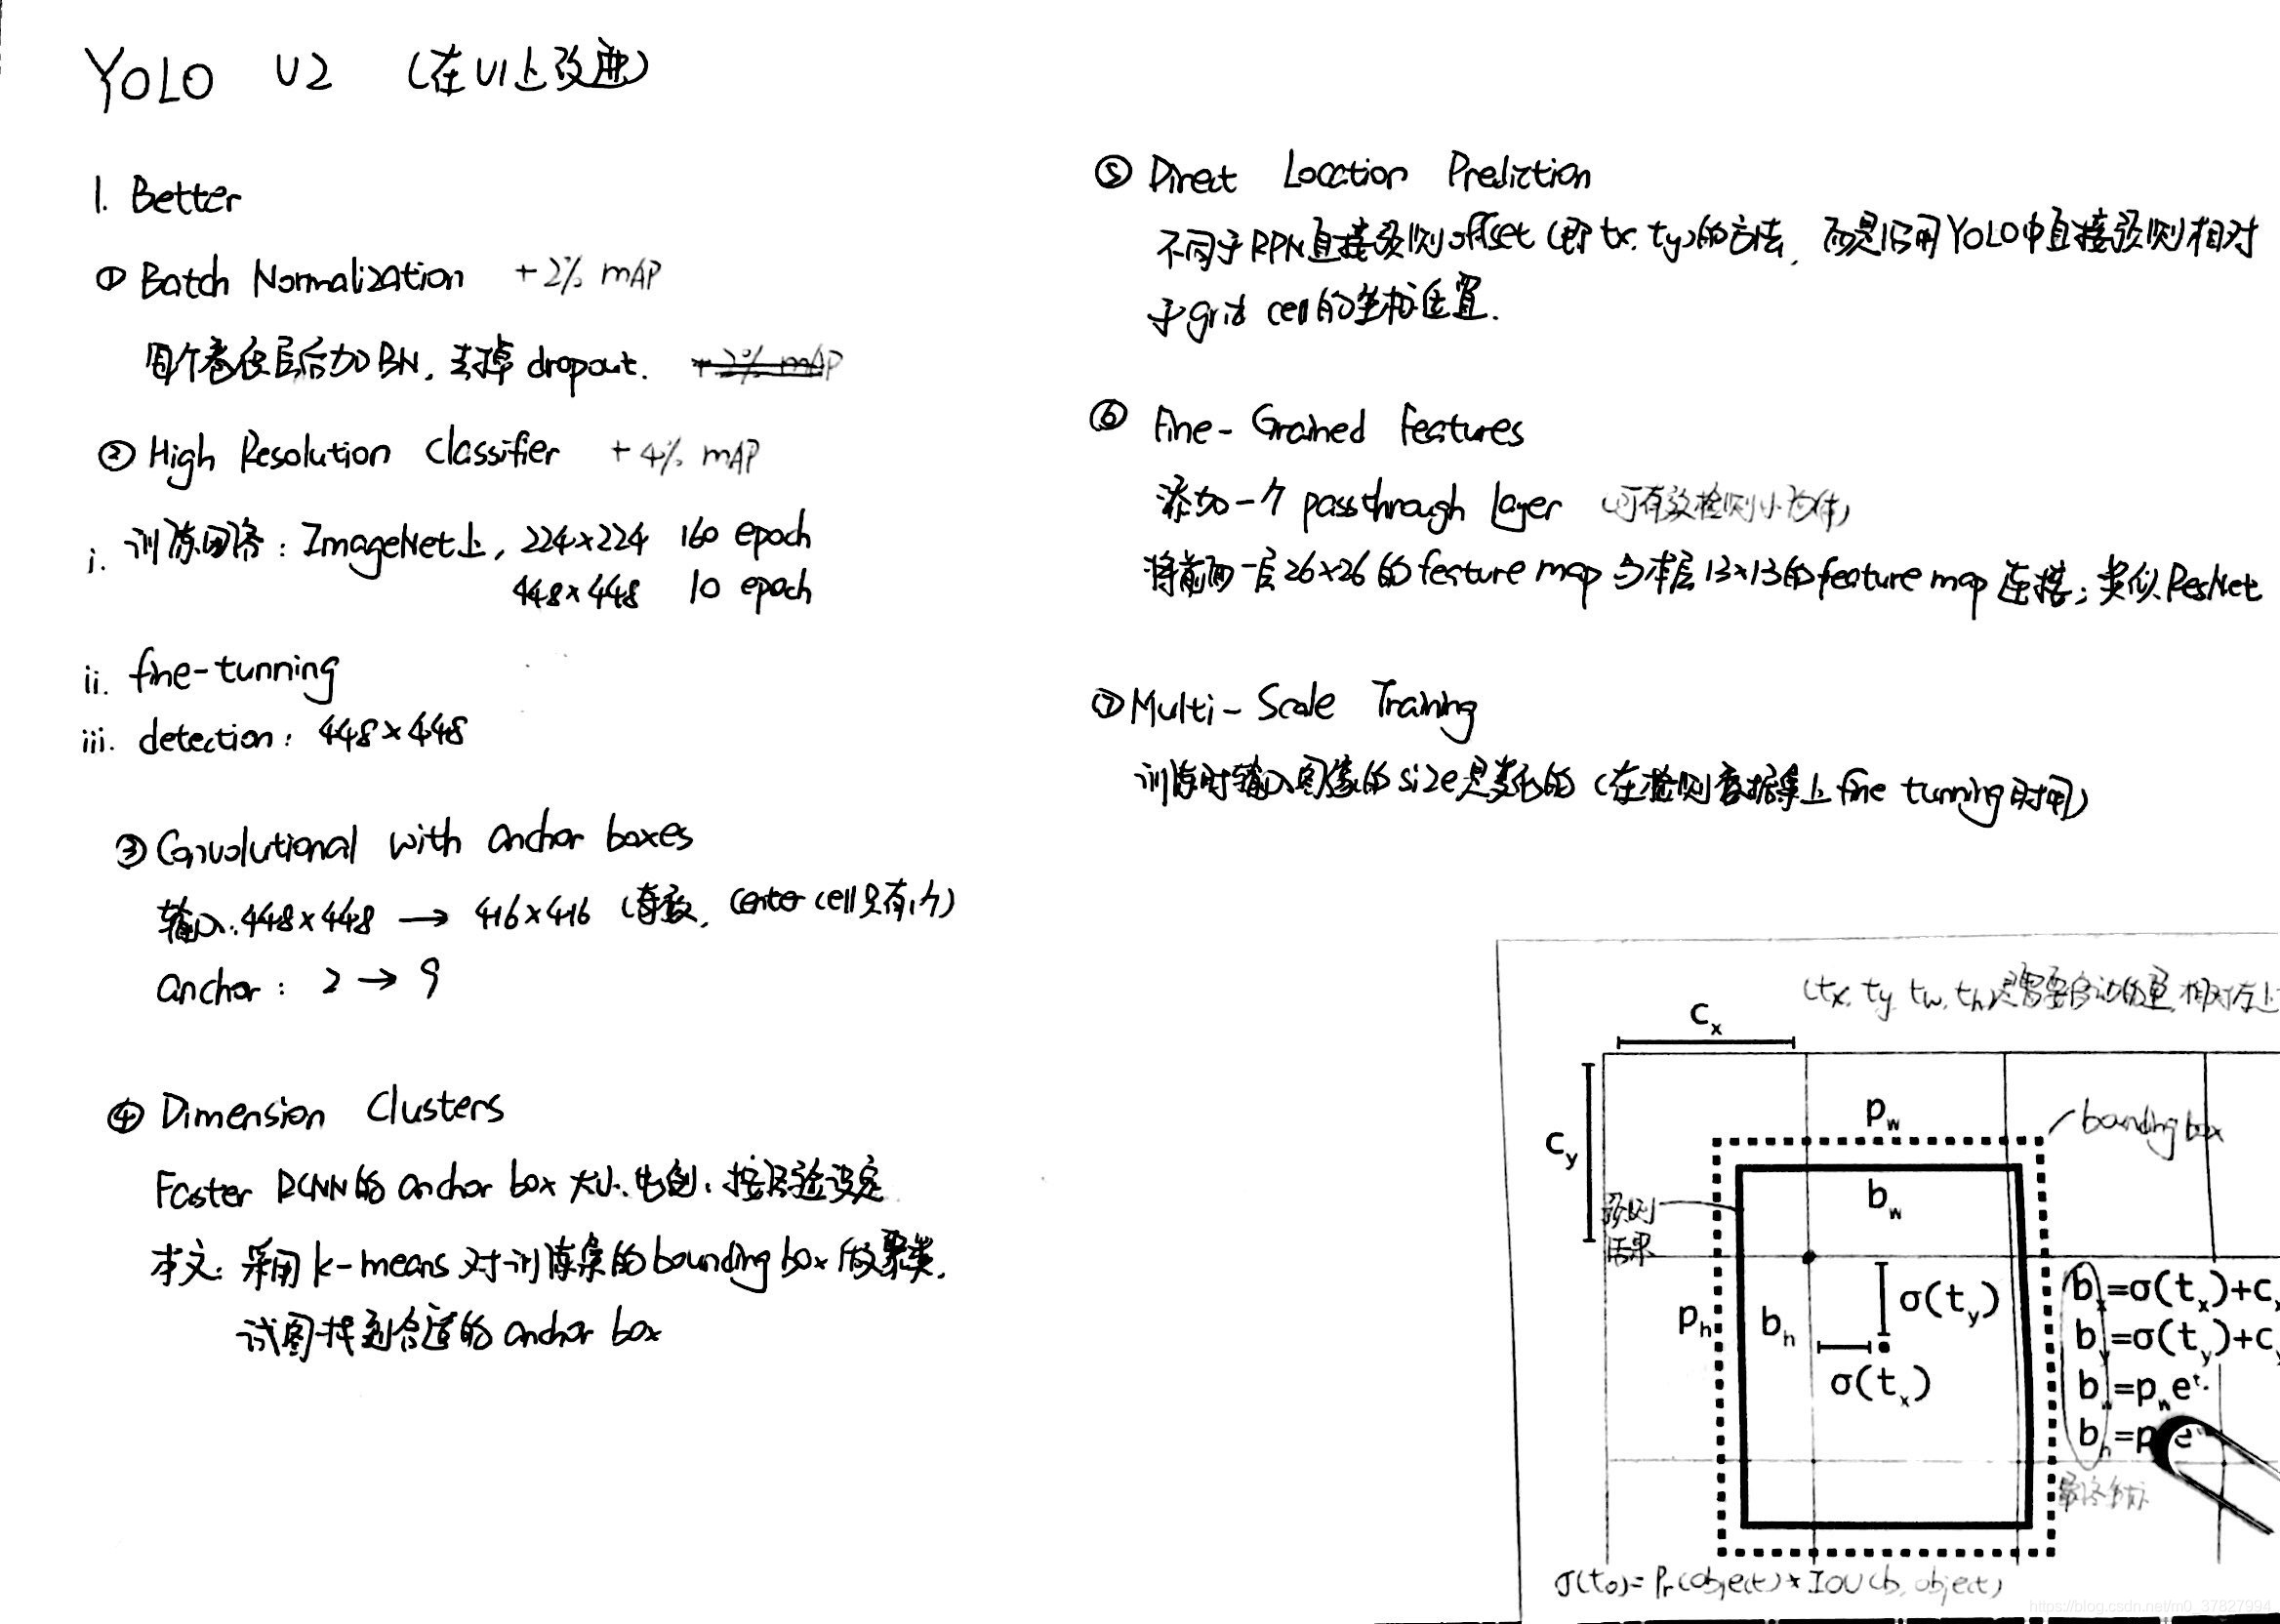 YOLO V2 (在V1上改进)
1. Better
① Batch Normalization +2% mAP
每个卷积层后加BN, 去掉 dropout. +2% mAP
② High Resolution Classifier +4% mAP
i. 训练网络: ImageNet上, 224×224 160 epoch
448×448 10 epoch
ii. fine-tunning
iii. detection: 448×448
③ Convolutional with anchor boxes
输入: 448×448 → 416×416 (奇数, center cell只有1个)
anchor: 2 → 9
④ Dimension Clusters
Faster RCNN的 anchor box 大小、比例, 按经验设定
本文: 采用 k-means 对训练集的 bounding box 做聚类,
试图找到合适的 anchor box
⑤ Direct Location Prediction
不同于RPN直接预测offset (即 tx, ty)的方法, 而是沿用YOLO中直接预测相对
于grid cell的坐标位置.
⑥ Fine-Grained Features
添加一个 passthrough layer (可有效检测小物体)
将前面一层26×26的feature map与本层13×13的feature map 连接; 类似ResNet
⑦ Multi-Scale Training
训练时输入图像的size是变化的 (在检测数据集上 fine tunning时用)
(tx, ty, tw, th)是需要学习的量, 相对左上
cx
cy
pw
bounding box
bw
预测
结果
ph
bh
σ(ty)
σ(tx)
bx=σ(tx)+cx
by=σ(ty)+cy
bw=pwe
bh=p e
最终坐标
σ(to)= Pr(object) * IOU(b, object)
https://blog.csdn.net/m0_37827994